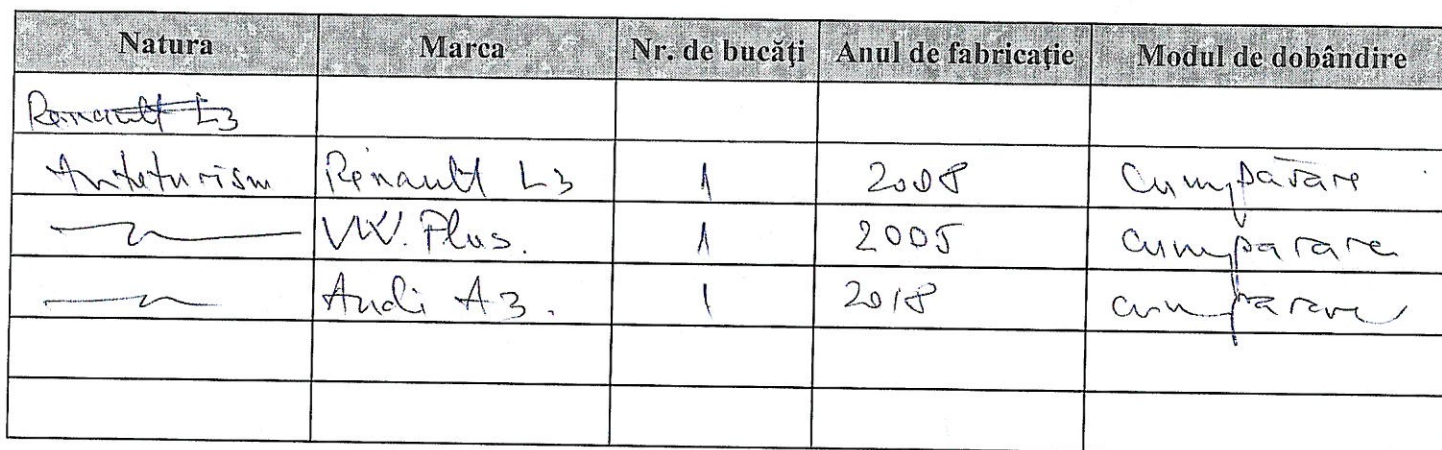 Natura Marca Nr. de bucăți Anul de fabricație Modul de dobândire
Renault L3
Autoturism Renault L3 1 2008 Cumpărare
VW. Plus. 1 2005 cumparare
Audi A3. 1 2018 cumparare